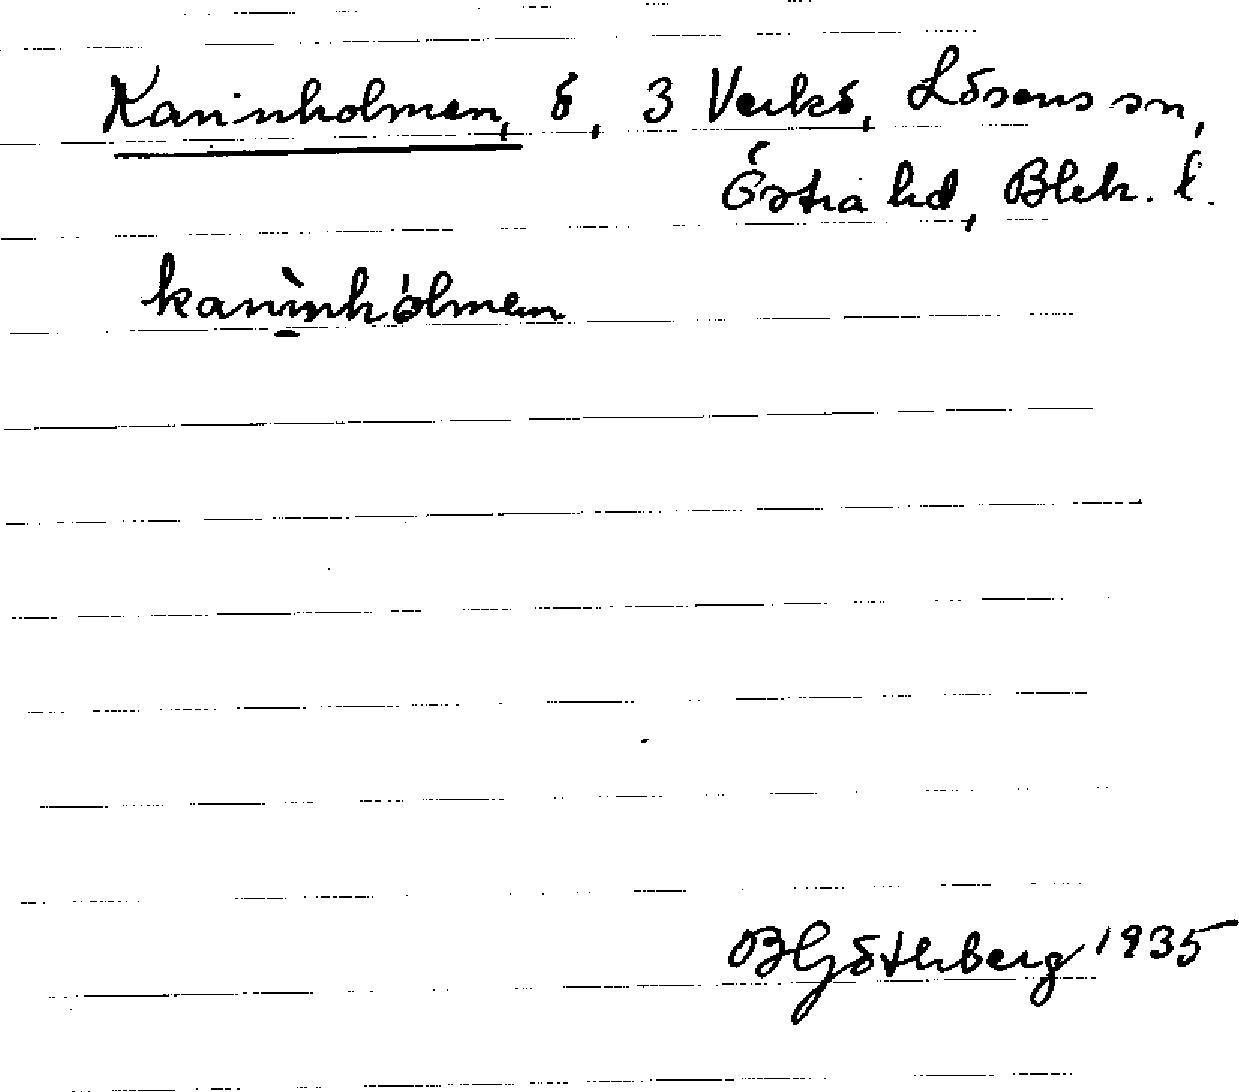 Kaninholmen, ö, 3 Verkö, Lösens sn,
Östra hd, Blek. l.
kanìnhólmen
B Götherberg 1935